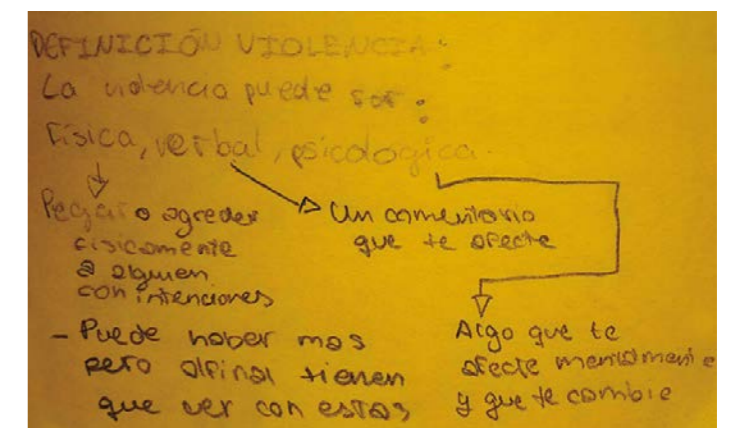 DEFINICIÓN VIOLENCIA:
La violencia puede ser:
Física, verbal, psicologica.
Pegar o agreder
fisicamente
a alguien
con intenciones
Un comentario
que te afecte
Algo que te
afecte mentalmente
y que te cambie
- Puede haber mas
pero alfinal tienen
que ver con estas